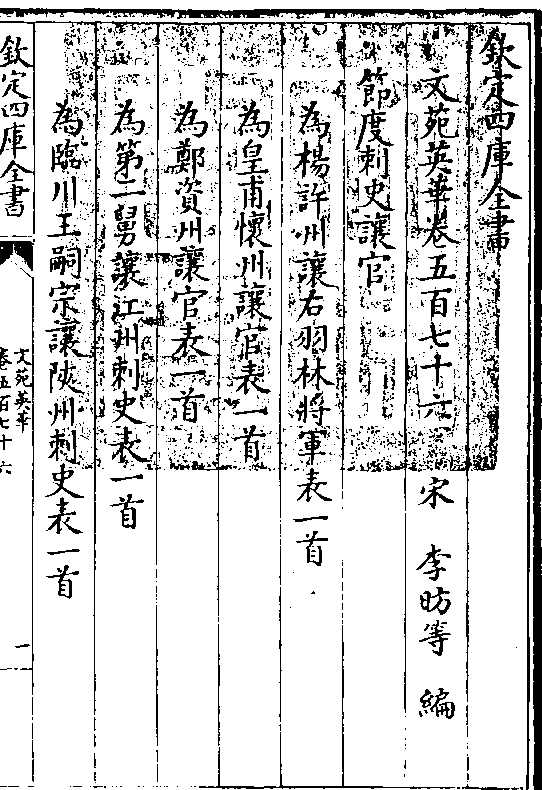 欽定四庫全書
文苑英華卷五百七十六 宋 李昉等 編
節度刺史讓官
為楊許州讓右羽林將軍表一首
為皇甫懷州讓官表一首
為鄭資州讓官表一首
為第二舅讓江州刺史表一首
為臨川王嗣宗讓陜州刺史表一首
欽定四庫全書
文苑英華
卷五百七十六
一